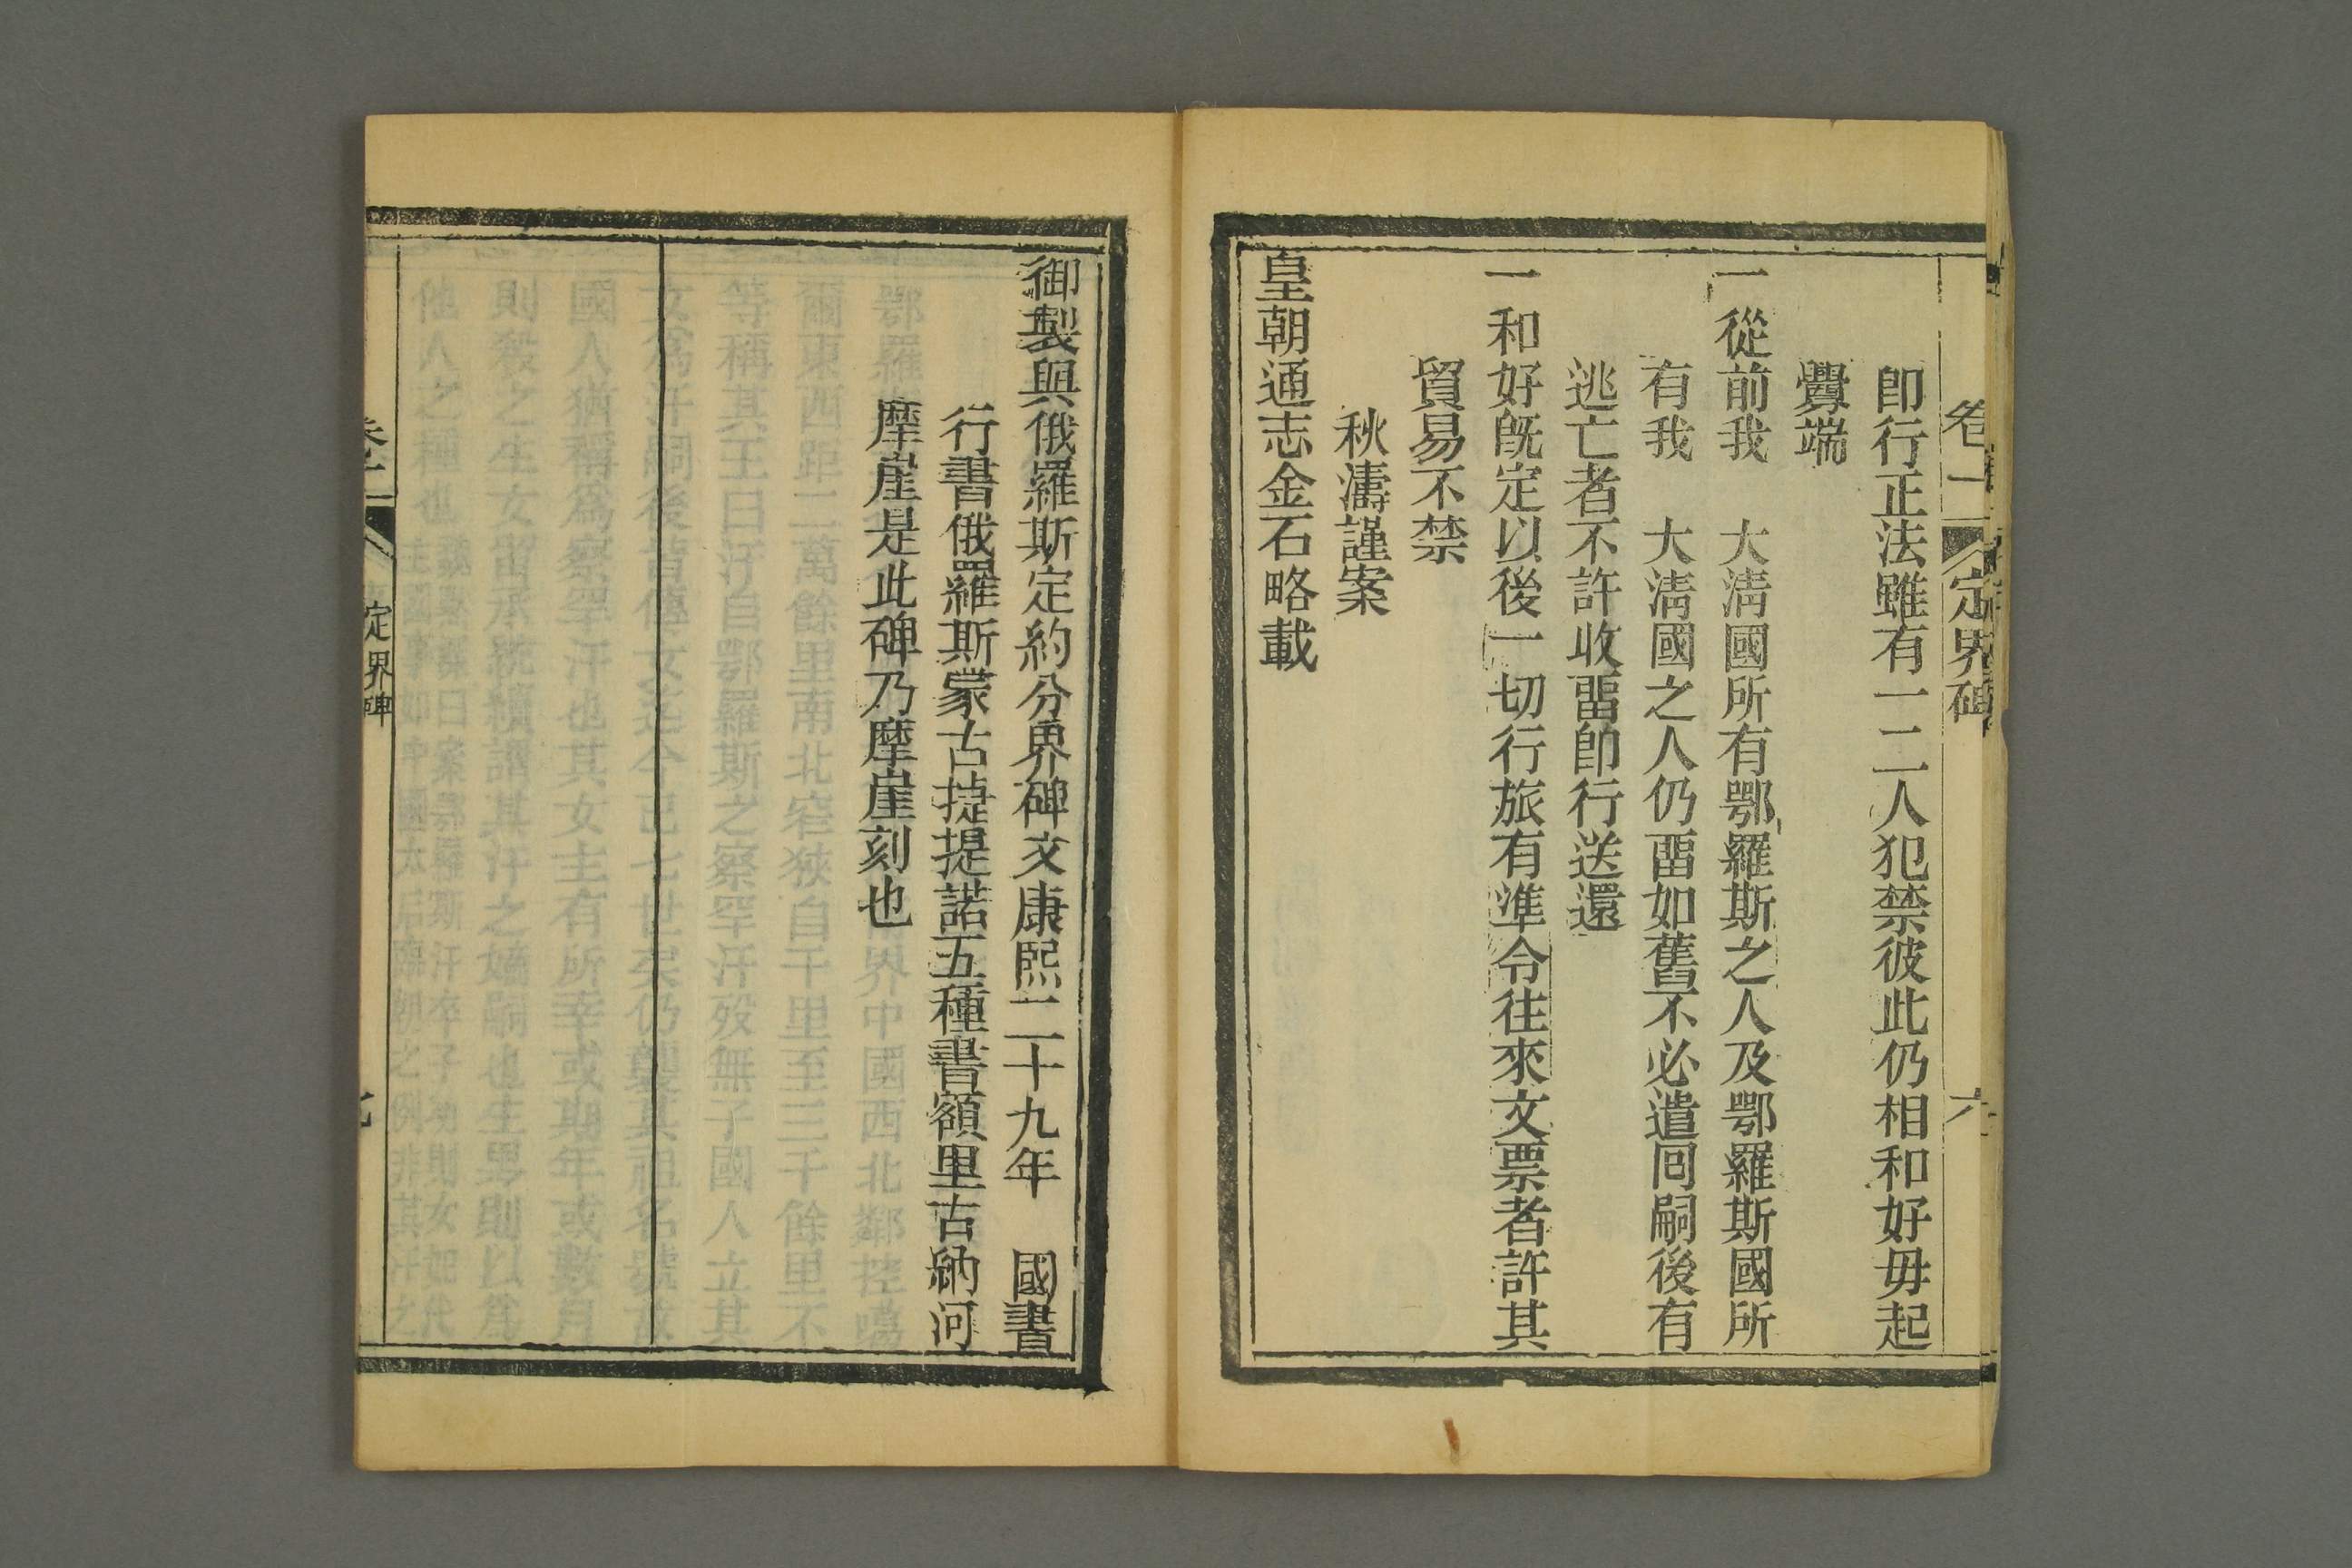 卷一 定界碑 六
卽行正法雖有一二人犯禁彼此仍相和好毋起
釁端
一從前我 大淸國所有鄂羅斯之人及鄂羅斯國所
有我 大淸國之人仍畱如舊不必遣囘嗣後有
逃亡者不許收畱卽行送還
一和好旣定以後一切行旅有準令往來文票者許其
貿易不禁
秋濤謹案
皇朝通志金石略載
御製與俄羅斯定約分界碑文康熙二十九年 國書
行書俄羅斯蒙古㨗提諾五種書額里古納河
摩崖是此碑乃摩崖刻也
定界碑